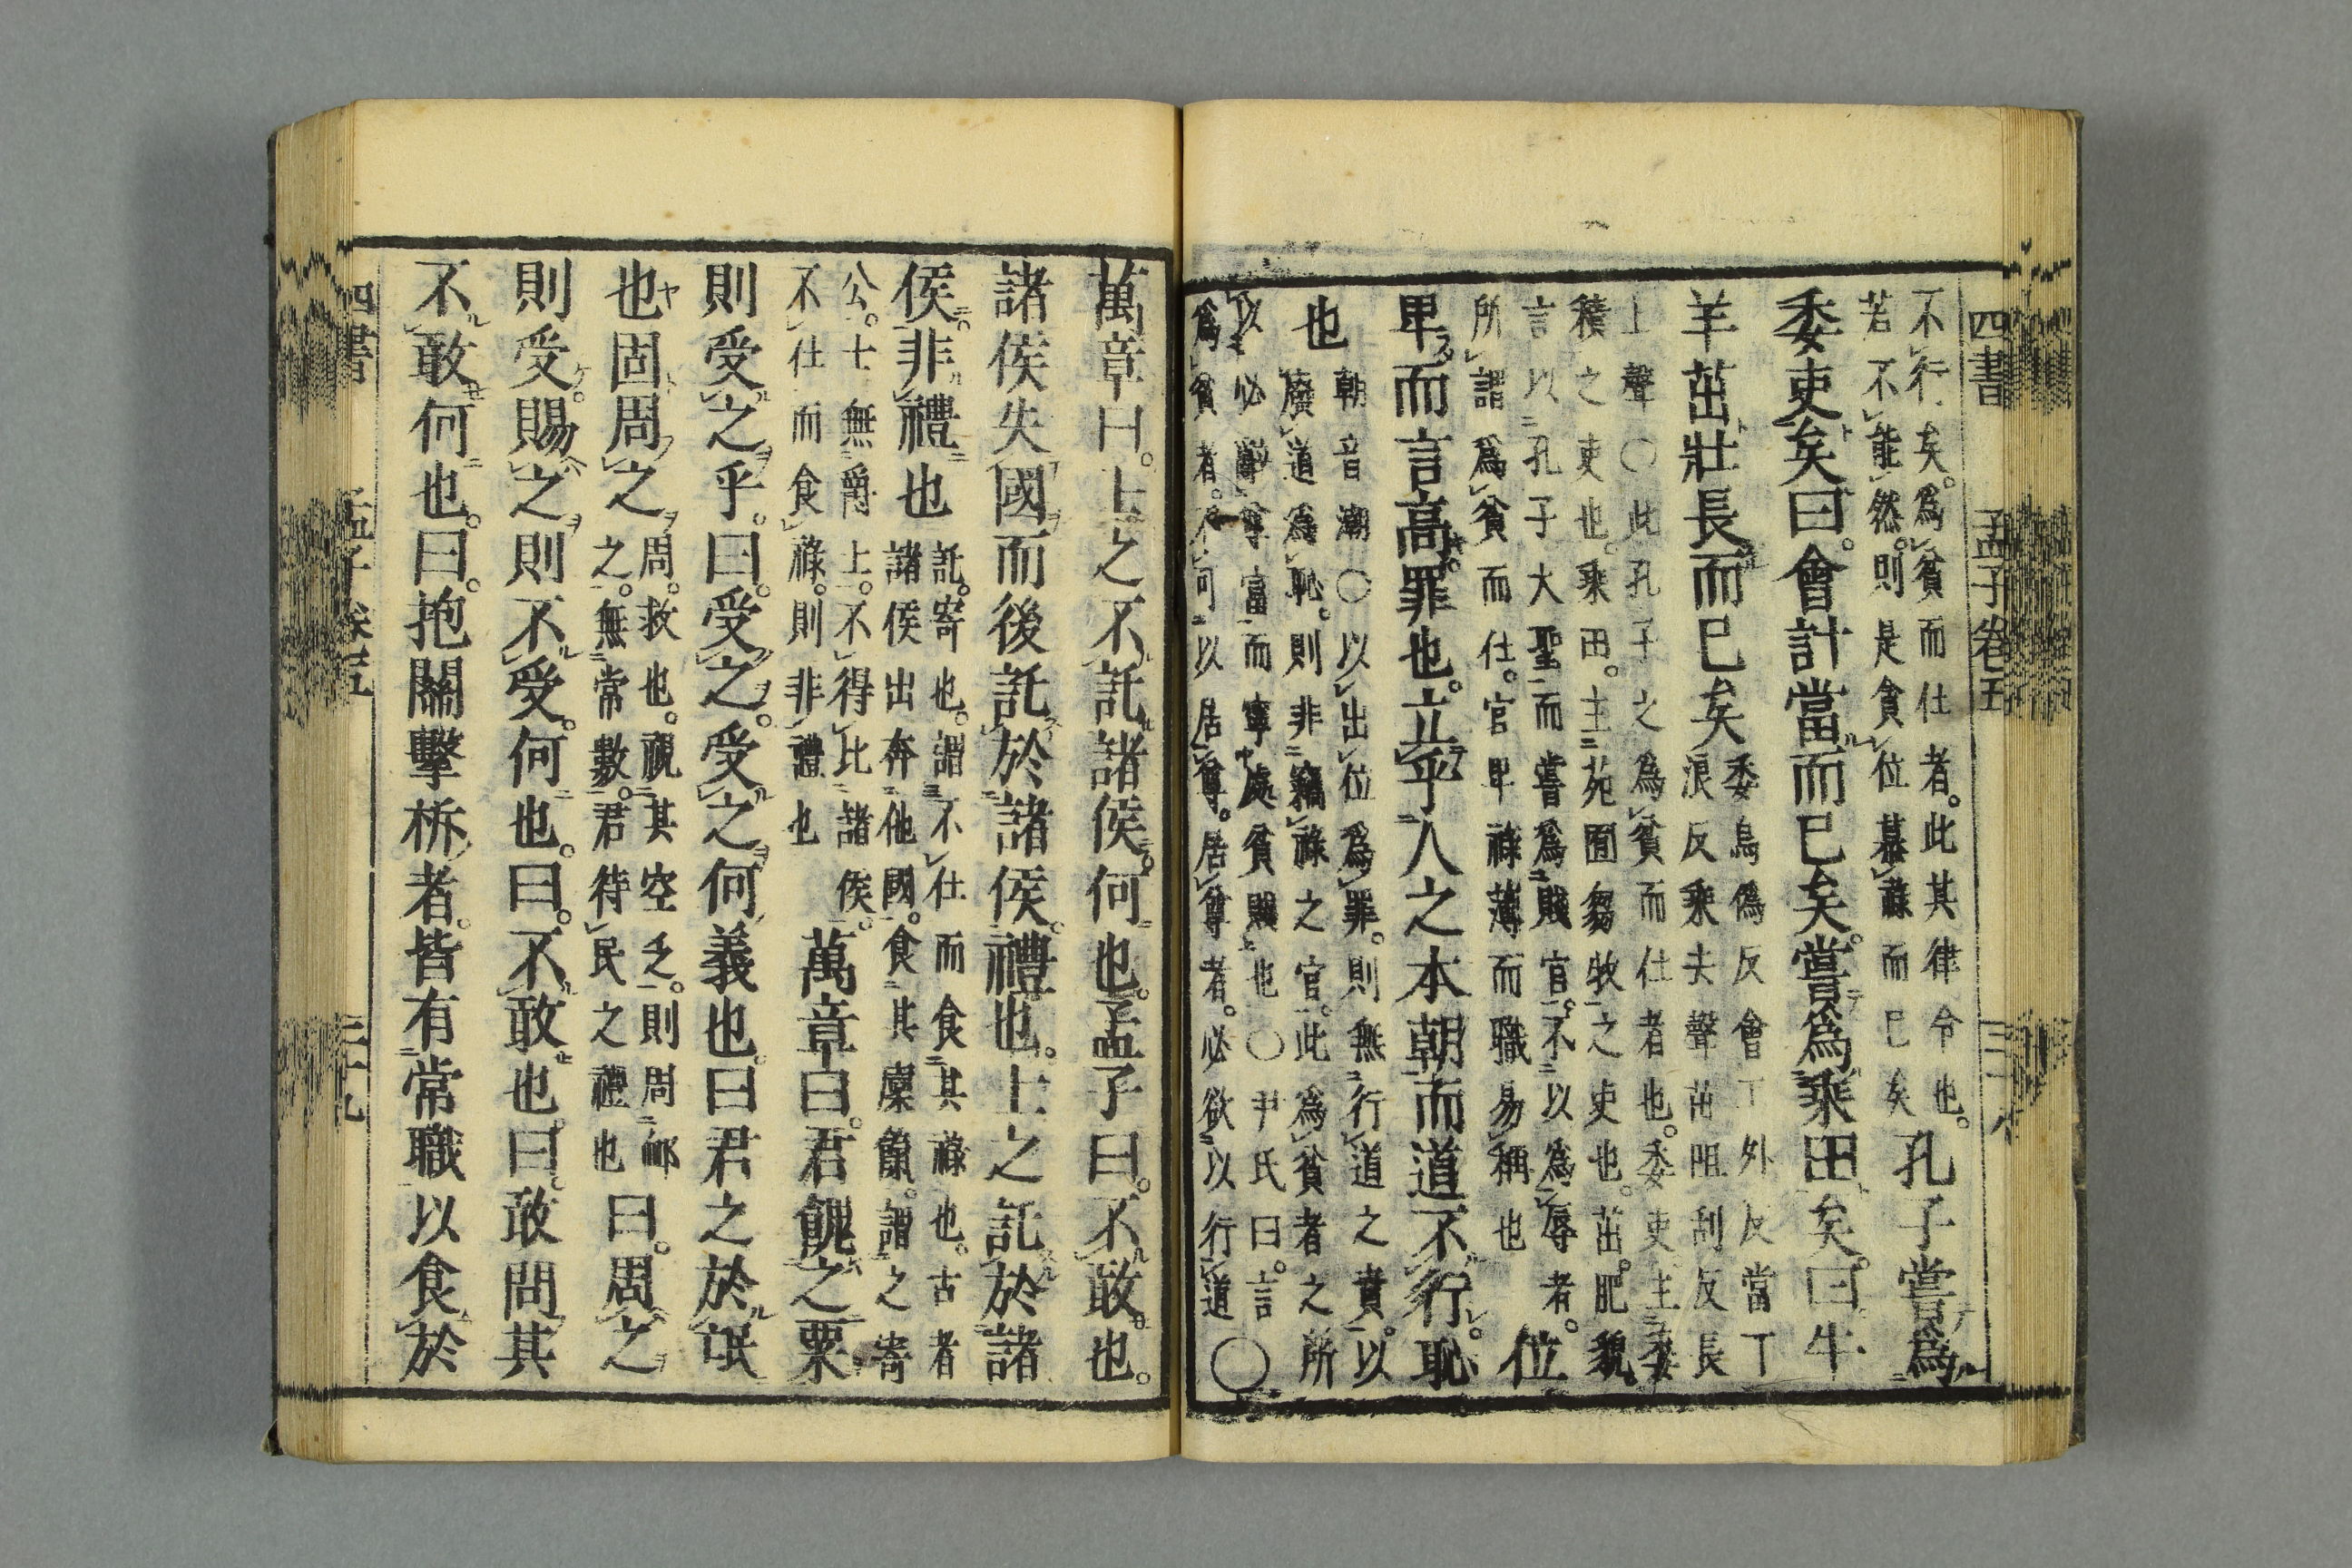 四書 孟子卷五
不行矣。爲貧而仕者。此其律令也。
若不能然。則是貪位慕祿而已矣
孔子嘗爲
委吏矣曰。會計當而已矣。嘗爲乘田矣。曰牛
羊茁壯長而已矣
委烏僞反會工外反當丁
浪反乘去聲茁阻刮反長
上聲○此孔子之爲貧而仕者也。委吏。主委
積之吏也。乘田。主苑囿芻牧之吏也。茁。肥貌
言以孔子大聖而嘗爲賤官。不以爲辱者。
所謂爲貧而仕。官卑祿薄而職易稱也
位
卑而言高。罪也。立乎人之本朝而道不行。恥
也
朝音潮○以出位爲罪。則無行道之責。以
廢道爲恥。則非竊祿之官。此爲貧者之所
以必辭尊富而寧處貧賤也○尹氏曰。言
爲貧者。不可以居尊。居尊者。必欲以行道
○
萬章曰。士之不託諸侯。何也。孟子曰。不敢也。
諸侯失國而後託於諸侯。禮也。士之託於諸
侯。非禮也
託。寄也。謂不仕而食其祿也。古者
諸侯出奔他國。食其廩餼。謂之寄
公。士無爵土。不得比諸侯。
不仕而食祿。則非禮也
萬章曰。君餽之粟
則受之乎。曰。受之。受之何義也。曰君之於氓
也固周之
周。救也。視其空乏。則周卹
之。無常數。君待民之禮也
曰。周之
則受。賜之則不受。何也。曰。不敢也。曰。敢問其
不敢何也。曰。抱關擊柝者。皆有常職以食於
四書 孟子卷五 三十九